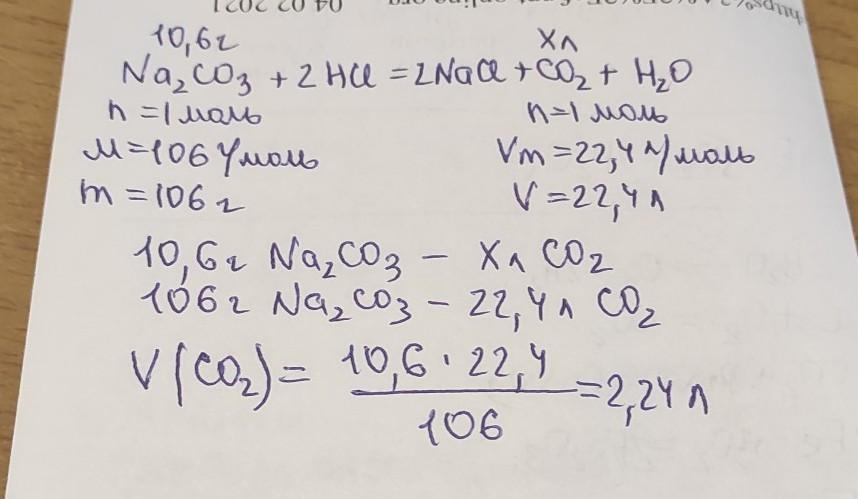 04 02 2021
10,6г хл
Na₂CO₃ + 2HCl = 2NaCl + CO₂ + H₂O
n = 1 моль n = 1 моль
M = 106 г/моль Vm = 22,4 л/моль
m = 106 г V = 22,4 л
10,6г Na₂CO₃ – хл CO₂
106г Na₂CO₃ – 22,4 л CO₂
V(CO₂) = 10,6 · 22,4 / 106 = 2,24 л